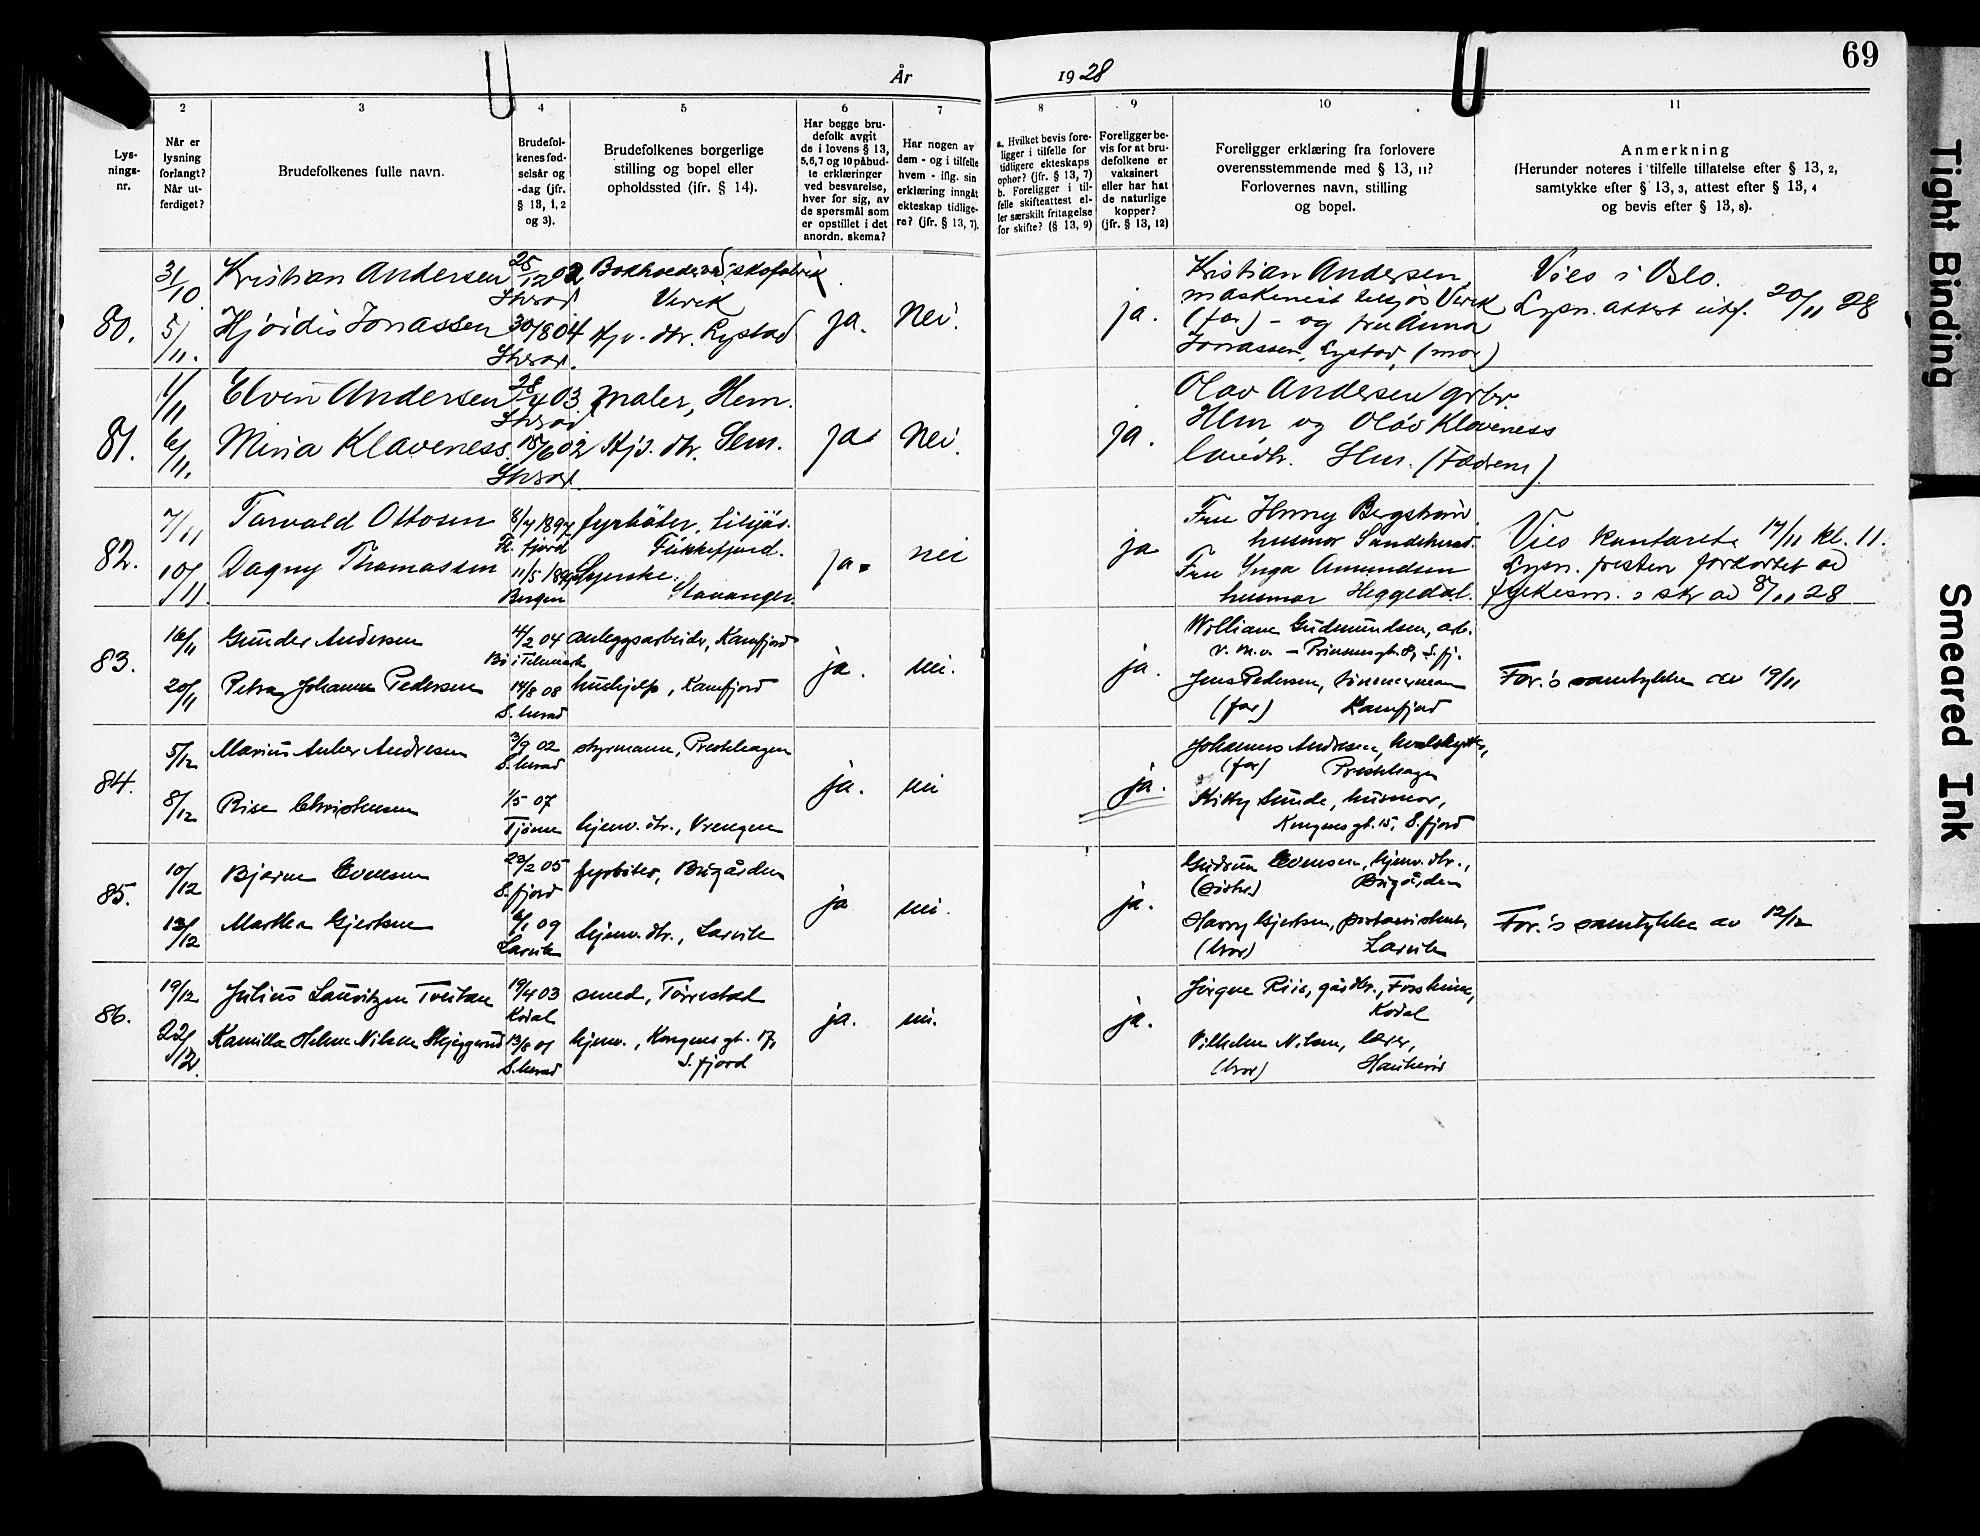 År
1928
69
2
3
4
5
6
7
8
9
10
11
Lys-
nings-
nr.
Når er
lysning
forlangt?
Når ut-
ferdiget?
Brudefolkenes fulle navn.
Brudefol-
kenes fød-
selsår og
-dag (jfr.
§ 13, 1, 2
og 3).
Brudefolkenes borgerlige
stilling og bopel eller
opholdssted (jfr. § 14).
Har begge bru-
defolk avgit
de i lovens § 13,
5, 6, 7 og 10 påbud-
te erklæringer
ved besvarelse,
hver for sig, av
de spørsmål som
er opstillet i det
anordn. skema?
Har nogen av
dem - og i tilfelle
hvem - iflg. sin
erklæring inngått
ekteskap tidlige-
re? (jfr. § 13, 7).
a. Hvilket bevis fore-
ligger i tilfelle for
tidligere ekteskaps
ophør? (jfr. § 13, 7)
b. Foreligger i til-
felle skifteattest el-
ler særskilt fritagelse
for skifte? (§ 13, 9)
Foreligger be-
vis for at bru-
defolkene er
vaksinert
eller har hat
de naturlige
kopper?
(jfr. § 13, 12)
Foreligger erklæring fra forlovere
overensstemmende med § 13, 11?
Forlovernes navn, stilling
og bopel.
Anmerkning
(Herunder noteres i tilfelle tillatelse efter § 13, 2,
samtykke efter § 13, 3, attest efter § 13, 4
og bevis efter § 13, 8).
80.
31/10
5/11.
Kristian Andersen
25/12 02
Hjørdis Jonassen
30/8 04
Verik
Hjv. dtr. Lystad
ja.
Nei.
ja.
Kristian Andersen,
maskenist Verik
(far) - og fru Anna
Jonassen, Lystad, (mor)
Vies i Oslo.
Lysn. attest utf. 20/11 28
81.
1/11
6/11.
Elvin Andersen
28/4 03
maler, Hem.
Mina Klaveness
15/6 02
Hjv. dtr. Sem.
ja.
Nei.
ja.
Olav Andersen grbr.
Hem og Olav Klaveness
landh. Hem. (Fædrene)
82.
7/11
10/11.
Torvald Ottosen
8/4 1894
fyrbøter,
Flekkefjord.
Dagny Thomassen
Bergen
Syerske.
Stavanger.
ja.
nei
ja
Fru Henny Bergstrøm
husmor Sandeherad.
Fru Inga Amundsen
husmor Heggedal.
Vies kontoret 14/11 kl. 11.
Lysn. fristen forkortet av
fylkesm. i skr av 8/11 28
83.
16/11
20/11
Gunder Andersen
4/2 04
anleggsarbeider, Kamfjord
Bø i Telemark
Petra Johanne Pedersen
14/8 08
hushjelp, Kamfjord
S. herad
ja.
nei.
ja.
William Gudmundsen, arb.
v. m. v. - Prinsensgt. 8, S. fj.
Jens Pedersen, tømmermann
(far) Kamfjord
For.'s samtykke av 19/11
84.
5/12
8/12
Marius Anker Andresen
3/9 02
S. herad
styrmann, Presthagen
Rise Christensen
1/5 07
Tjøme
hjemv. dtr., Vrengen
ja.
nei
ja.
Johannes Andresen, hvalskytter,
(far) Presthagen
Kitty Sunde, husmor,
Kongensgt. 15, S. fjord
85.
10/12
13/12
Bjarne Evensen
23/2 05
S. fjord
fyrbøter, Bugården
Martha Gjertsen
6/1 09
Larvik
hjemv. dtr., Larvik
ja
nei.
ja.
Gudrun Evensen, hjemv. dtr.,
(søster) Bugården
Harry Gjertsen,
(bror) Larvik
For.'s samtykke av 12/12
86.
19/12
22/12
Julius Lauritzen Tveitan
19/4 03
Kodal
smed, Torrestad
Kamilla Helene Nilsen Skjeggerud
13/8 01
S. herad
hjemv., Kongensgt. 17,
S. fjord
ja.
nei.
ja.
Jørgen Riis, gårdbr.,
Kodal
Vilhelm Nilsen, lærer,
(bror) Haukerød
Tight Binding
Smeared Ink